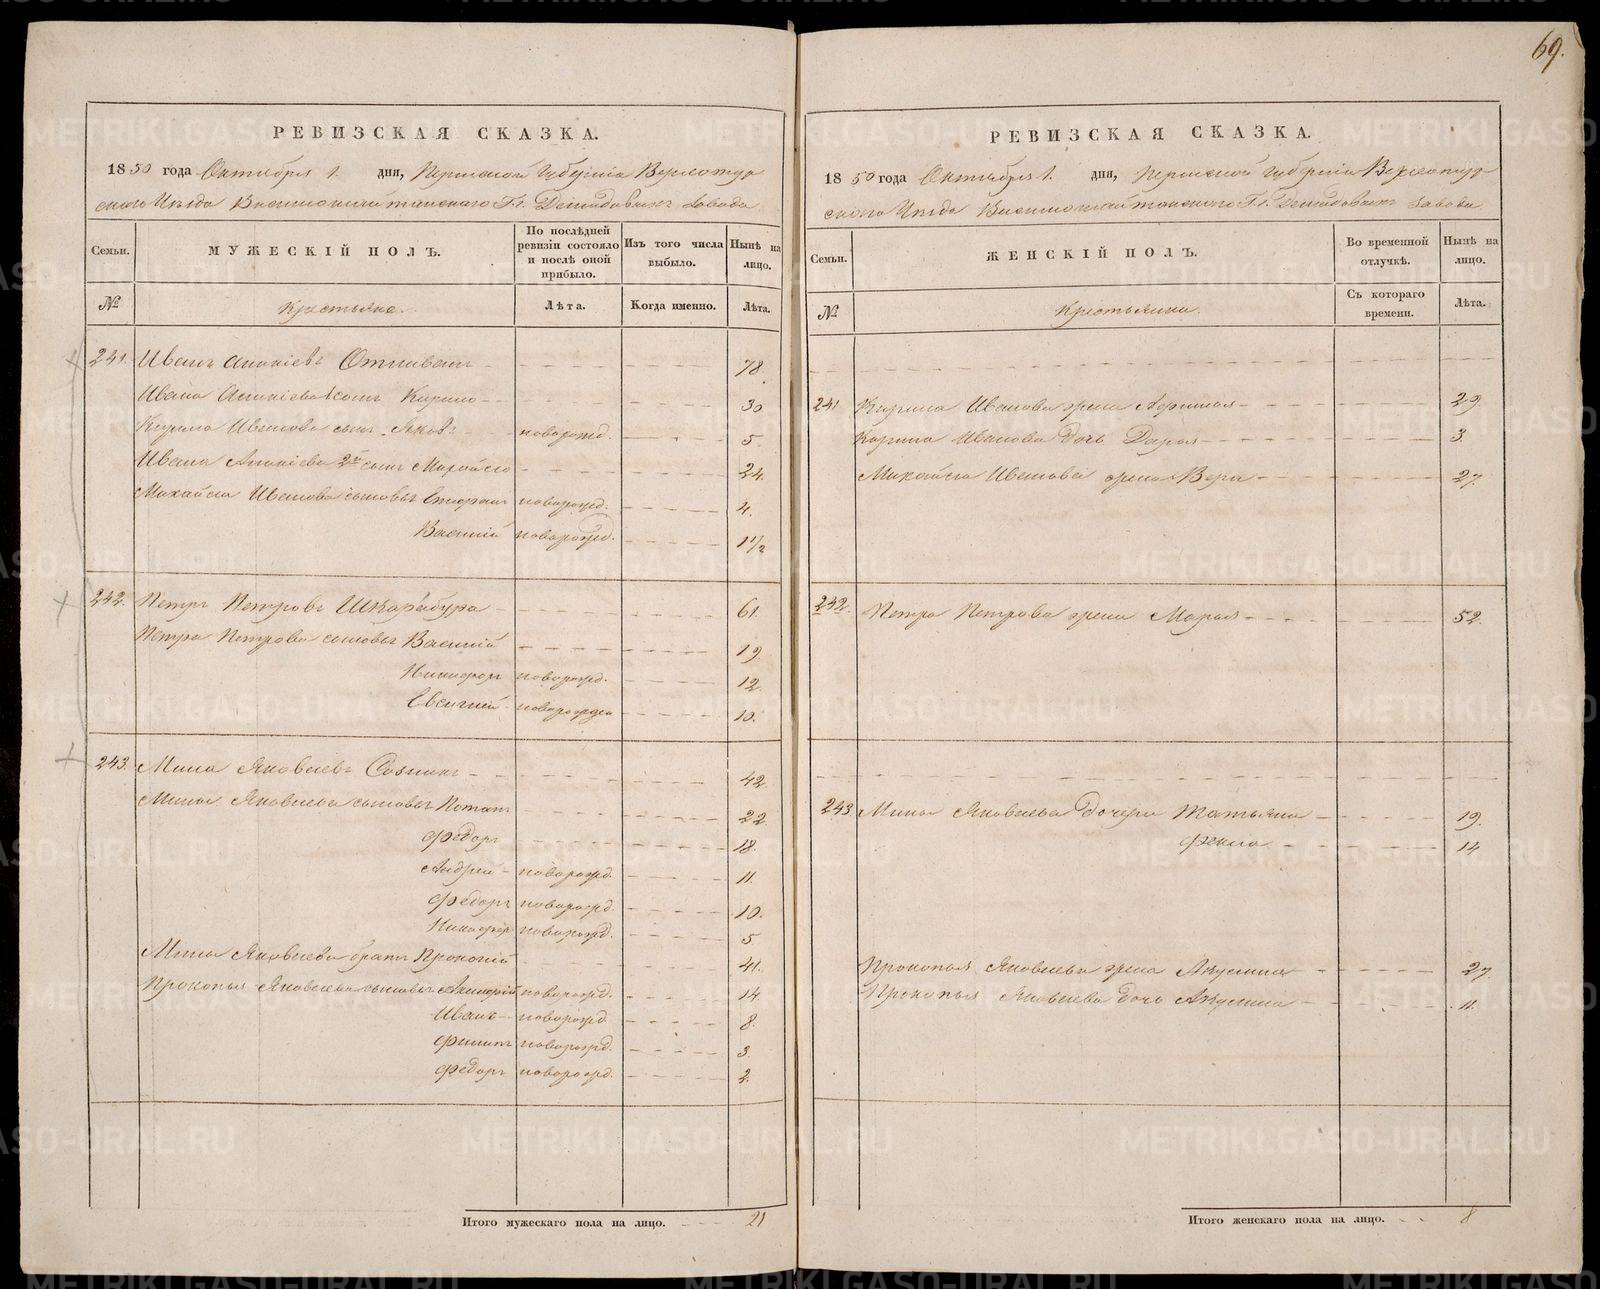 69.
РЕВИЗСКАЯ СКАЗКА.
1850 года Октября 1. дня, Пермской Губернiи Верхотур
скаго Уѣзда Висимошайтанскаго Гг. Демидовыхъ Завода
Семьи. МУЖЕСКІЙ ПОЛЪ. По послѣдней ревизіи состояло и послѣ оной прибыло. Изъ того числа выбыло. Нынѣ на лицо.
№ Крестьяне. Лѣта. Когда именно. Лѣта.
241. Иванъ Ананiевъ 78.
Ивана Ананiева сынъ Кирило 30
Кирила Иванова сынъ Яковъ новорожд. 5.
Ивана Ананiева 2й сынъ Михайло 24.
Михайла Иванова сыновья новорожд. 4.
Василiй новорожд. 1 1/2
242. Петръ Петровъ Шкарабура 61.
Петра Петрова сыновья Василiй 19.
Никифоръ новорожд. 12
Евсигней новорожден 10.
243. Мина Яковлевъ Созинъ 42
Мины Яковлева сыновья Потапъ 22.
Федоръ 18.
Андрей новорожд. 11.
Федоръ новорожд. 10.
Никифоръ новорожд. 5
Мины Яковлева братъ Прокопiй 41.
Прокопья Яковлева сыновья новорожд. 14
Иванъ новорожд 8.
Филипъ новорожд. 3.
Федоръ новорожд. 2.
Итого мужескаго пола на лицо. 21
РЕВИЗСКАЯ СКАЗКА.
1850 года Октября 1. дня, Пермской Губернiи Верхотур
скаго Уѣзда Висимошайтанскаго Гг. Демидовыхъ Завода
Семьи. ЖЕНСКІЙ ПОЛЪ. Во временной отлучкѣ. Нынѣ на лицо.
№ Крестьянки. Съ котораго времени. Лѣта.
241 Кирила Иванова жена Афимья 29
Кирила Иванова дочь Дарья 3.
Михайла Иванова жена Вера 27.
242. Петра Петрова жена Марья 52.
243 Мины Яковлева дочери Татьяна 19.
Фекла 14
Прокопья Яковлева жена Акулина 27.
Прокопья Яковлева дочь Акулина 11.
Итого женскаго пола на лицо. 8
METRIKI.GASO-URAL.RU